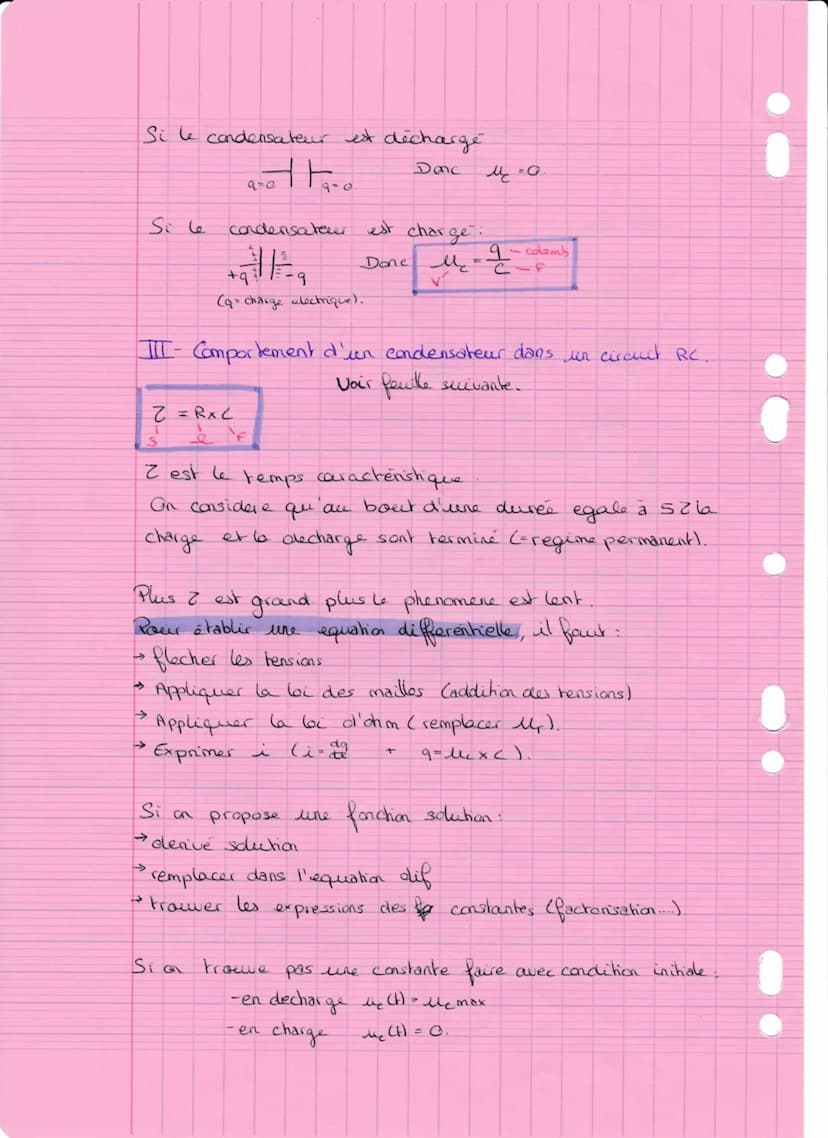 Si le condensateur est déchargé
q=0 q=0 Donc uc=0.
Si le condensateur est chargé :
+q -q Donc uc = q/C - colomb - F V
(q= charge electrique).
III - Comportement d'un condensateur dans un circuit RC.
Voir feuille suivante.
τ = R×C
s Ω F
τ est le temps caractéristique
On considere qu'au bout d'une durée egale à 5τ la
charge et la decharge sont terminé (=regime permanent).
Plus τ est grand plus le phenomene est lent.
Pour établir une equation differentielle, il faut :
→ flecher les tensions
→ Appliquer la loi des mailles (addition des tensions)
→ Appliquer la loi d'ohm (remplacer ur).
→ Exprimer i (i= dq/dt + q=uc×C).
Si on propose une fonction solution :
→ derivé solution
→ remplacer dans l'equation dif
→ trouver les expressions des constantes (factorisation...)
Si on trouve pas une constante faire avec condition initiale :
-en decharge uc(t)=uc max
-en charge uc(t)=0.